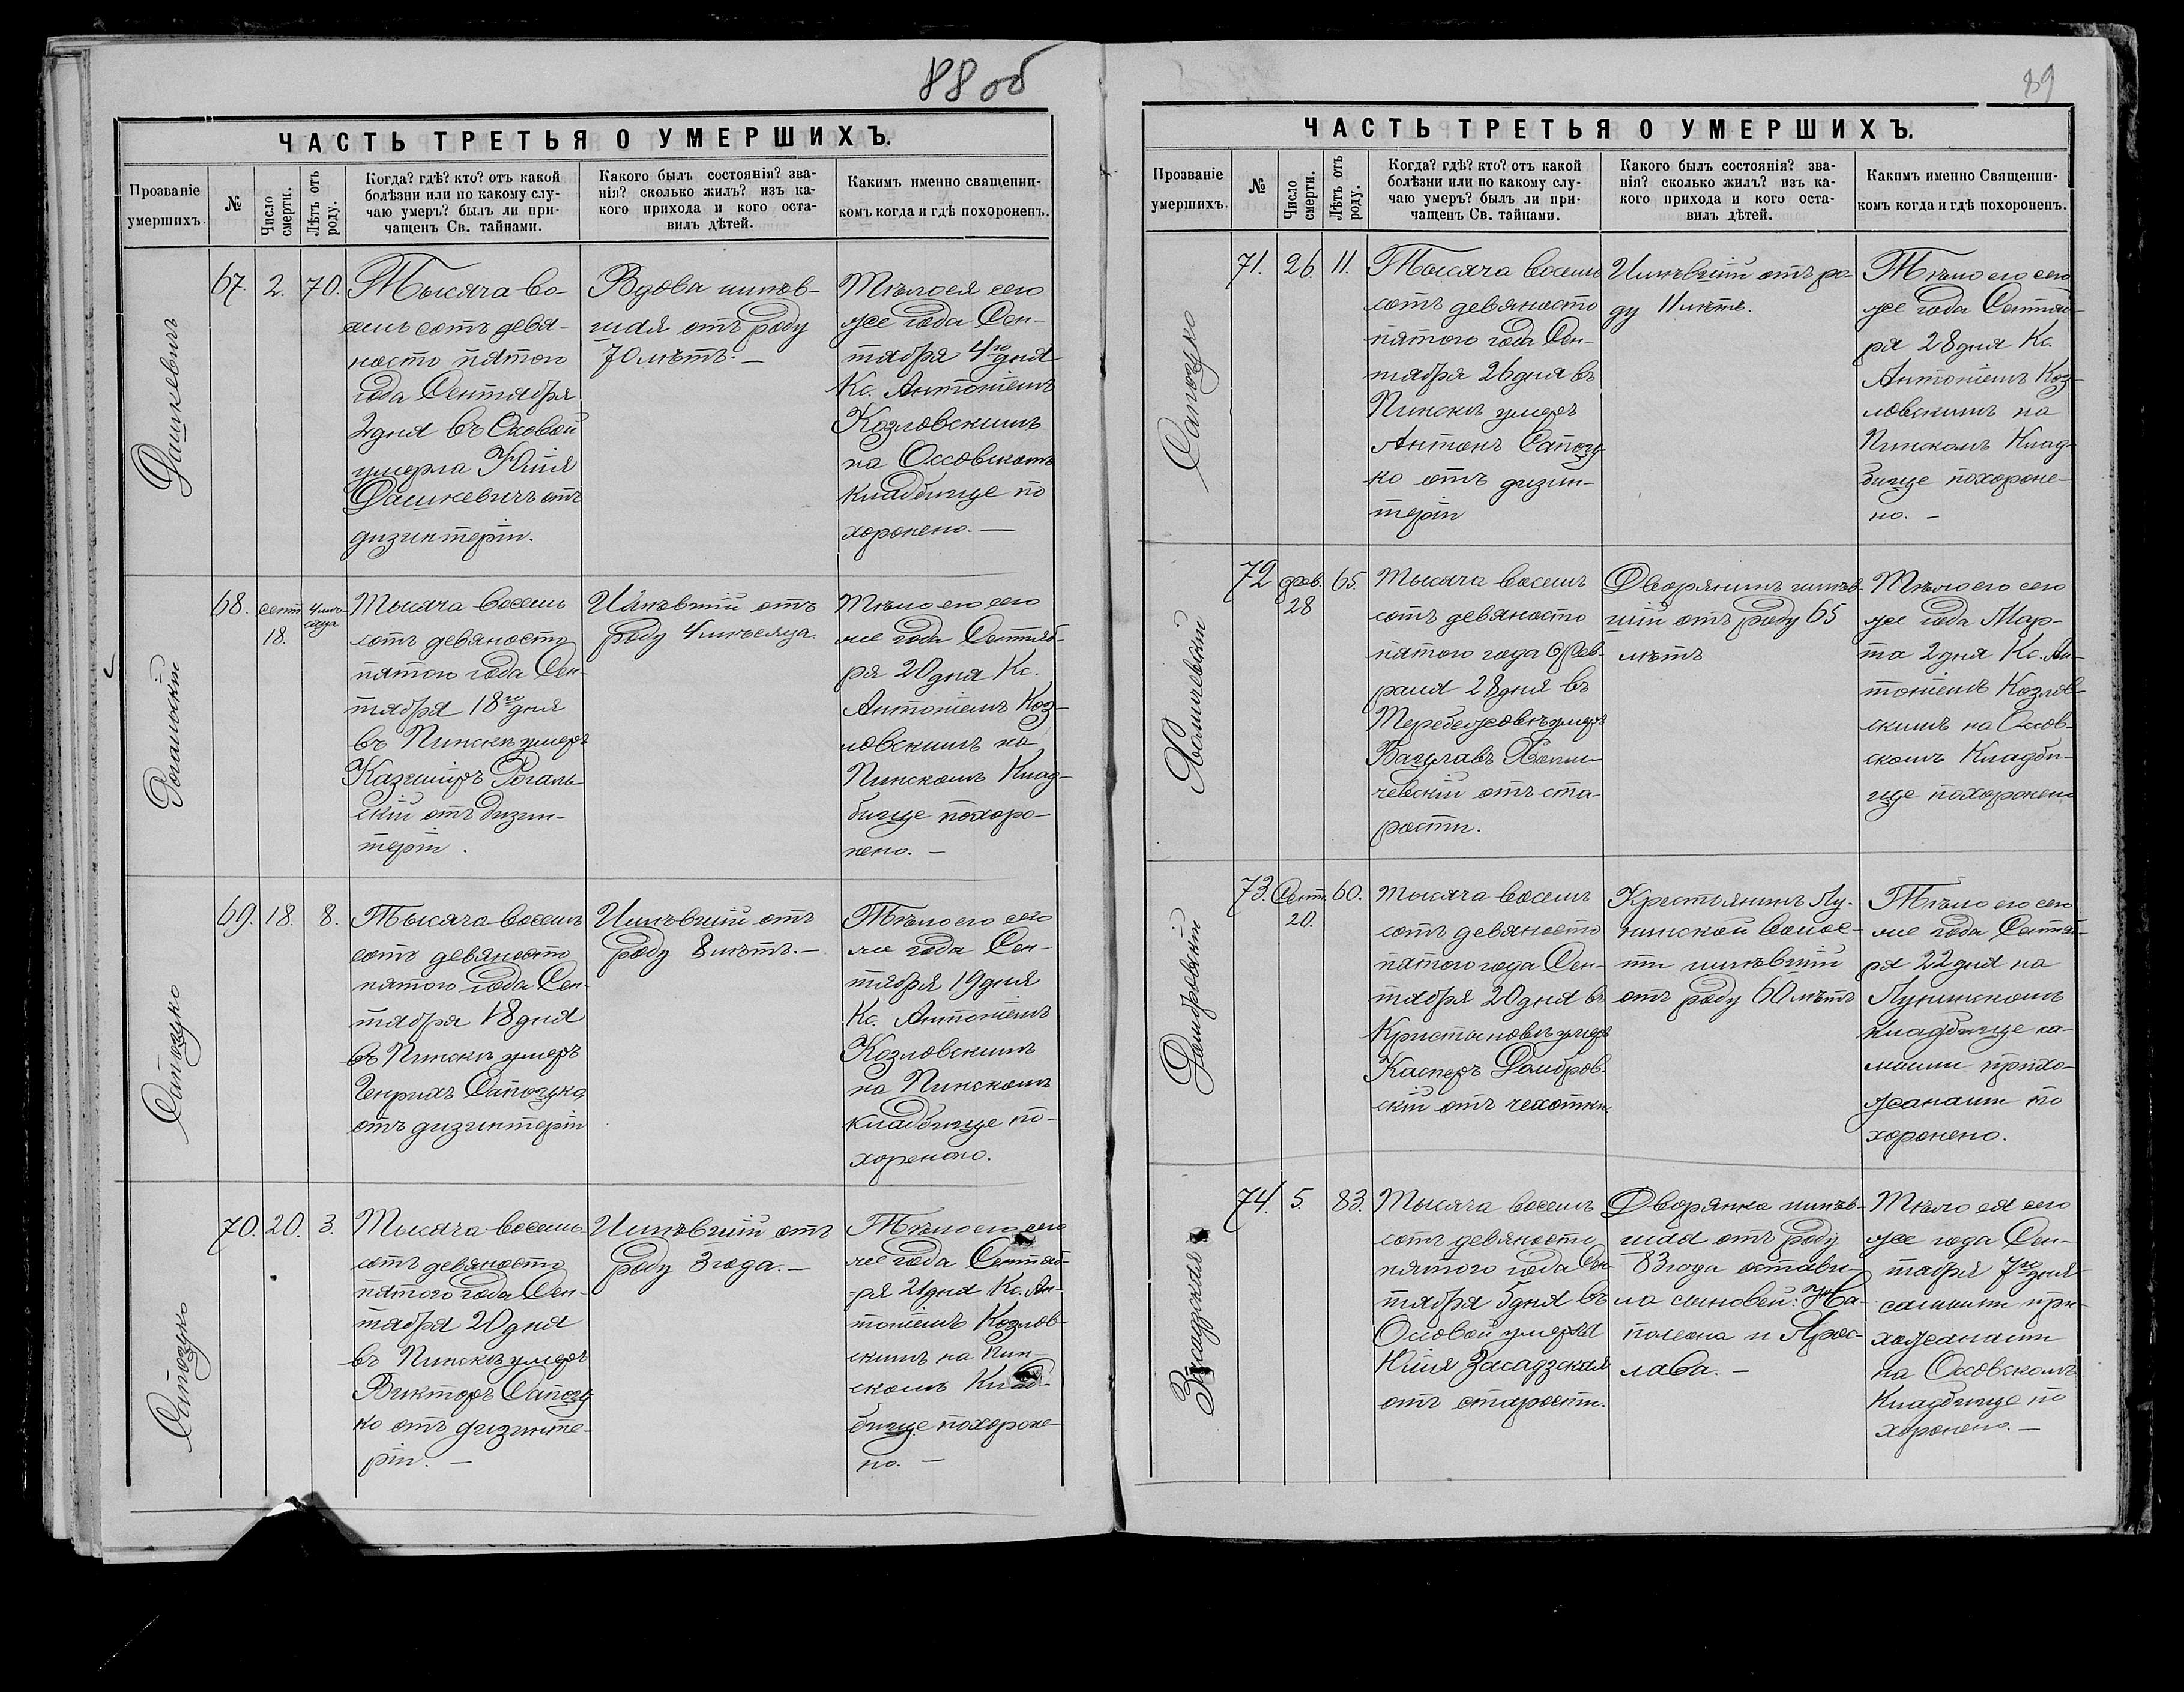 88 об
ЧАСТЬ ТРЕТЬЯ О УМЕРШИХЪ.
Прозваніе
умершихъ.
№
Число
смерти.
Лѣтъ отъ
роду.
Когда? гдѣ? кто? отъ какой
болѣзни или по какому слу-
чаю умеръ? былъ ли при-
чащенъ Св. тайнами.
Какого былъ состоянія? зва-
нія? сколько жилъ? изъ ка-
кого прихода и кого оста-
вилъ дѣтей.
Какимъ именно священни-
комъ когда и гдѣ похороненъ.
Дашкевичъ
67.
2.
70.
Тысяча во-
семь сотъ девя-
носто пятого
года Сентября
2 дня въ Осовой
умерла Юлія
Дашкевичъ отъ
дизинтеріи.
Вдова имѣв-
шая отъ роду
70 лѣтъ. —
Тѣло ея сего
же года Сен-
тября 4го дня
Кс. Антоніемъ
Козловскимъ
на Оссовскомъ
кладбище по
хоронено. —
Рогальскій
68.
сент.
18.
4 мѣ-
сяца
Тысяча восемь
сотъ девяносто
пятого года Сен-
тября 18го дня
въ Пинскѣ умеръ
Казиміръ Рогаль-
скій отъ дизин-
теріи.
Имѣвшій отъ
роду 4 мѣсяца.
Тѣло его сего
же года Сентяб-
ря 20 дня Кс.
Антоніемъ Коз-
ловскимъ на
Пинскомъ Клад-
бище похоро-
нено. —
Сапоцко
69.
18.
8.
Тысяча восемь
сотъ девяносто
пятого года Сен-
тября 18 дня
въ Пинскѣ умеръ
Генрихъ Сапоцко
отъ дизинтеріи
Имѣвшій отъ
роду 8 лѣтъ. —
Тѣло его сего
же года Сен-
тября 19 дня
Кс. Антоніемъ
Козловскимъ
на Пинскомъ
кладбище по-
хоронено.
Сапоцко
70.
20.
3.
Тысяча восемь
сотъ девяносто
пятого года Сен-
тября 20 дня
въ Пинскѣ умеръ
Викторъ Сапоц-
ко отъ дизинте-
ріи. —
Имѣвшій отъ
роду 3 года. —
Тѣло его сего
же года Сентяб-
ря 21 дня Кс. Ан-
тоніемъ Козлов-
скимъ на Пин-
скомъ Клад-
бище похороне-
но. —
89
ЧАСТЬ ТРЕТЬЯ О УМЕРШИХЪ.
Прозваніе
умершихъ.
№
Число
смерти.
Лѣтъ отъ
роду.
Когда? гдѣ? кто? отъ какой
болѣзни или по какому слу-
чаю умеръ? былъ ли при-
чащенъ Св. тайнами.
Какого былъ состоянія? зва-
нія? сколько жилъ? изъ ка-
кого прихода и кого оста-
вилъ дѣтей.
Какимъ именно Священни-
комъ когда и гдѣ похороненъ.
Сапоцко
71.
26.
11.
Тысяча восемь
сотъ девяносто
пятого года Сен-
тября 26 дня въ
Пинскѣ умеръ
Антонъ Сапоц-
ко отъ дизин-
теріи
Имѣвшій отъ ро-
ду 11 лѣтъ.
Тѣло его сего
же года Сентяб-
ря 28 дня Кс.
Антоніемъ Коз-
ловскимъ на
Пинскомъ Клад-
бище похороне-
но. —
72
фев.
28
65.
Тысяча восемь
сотъ девяносто
пятого года Фев-
раля 28 дня въ
Теребежовѣ умеръ
Вацлавъ
отъ ста-
рости.
Дворянинъ имѣв-
шій отъ роду 65
лѣтъ
Тѣло его сего
же года Мар-
та 2 дня Кс. Ан-
тоніемъ Козлов-
скимъ на Оссов-
скомъ Кладби-
ще похоронено
Домбровскій
73.
Сент.
20.
60.
Тысяча восемь
сотъ девяносто
пятого года Сен-
тября 20 дня въ
Кристыновѣ умеръ
Касперъ Домбров-
скій отъ чехотки
Крестьянинъ Лу-
нинской волос-
ти имѣвшій
отъ роду 60 лѣтъ
Тѣло его сего
же года Сентяб-
ря 22 дня на
Лунинскомъ
кладбище са-
мими прихо-
жанами по
хоронено.
Засадзская
74.
5.
83.
Тысяча восемь
сотъ девяносто
пятого года Сен-
тября 5 дня въ
Оссовой умерла
Юлія Засадзская
отъ старости.
Дворянка имѣв-
шая отъ роду
83 года остави-
ла сыновей: На-
полеона и Ярос-
лава. —
Тѣло ея сего
же года Сен-
тября 7го дня
самыми при-
хожанами
на Оссовскомъ
Кладбище по
хоронено. —